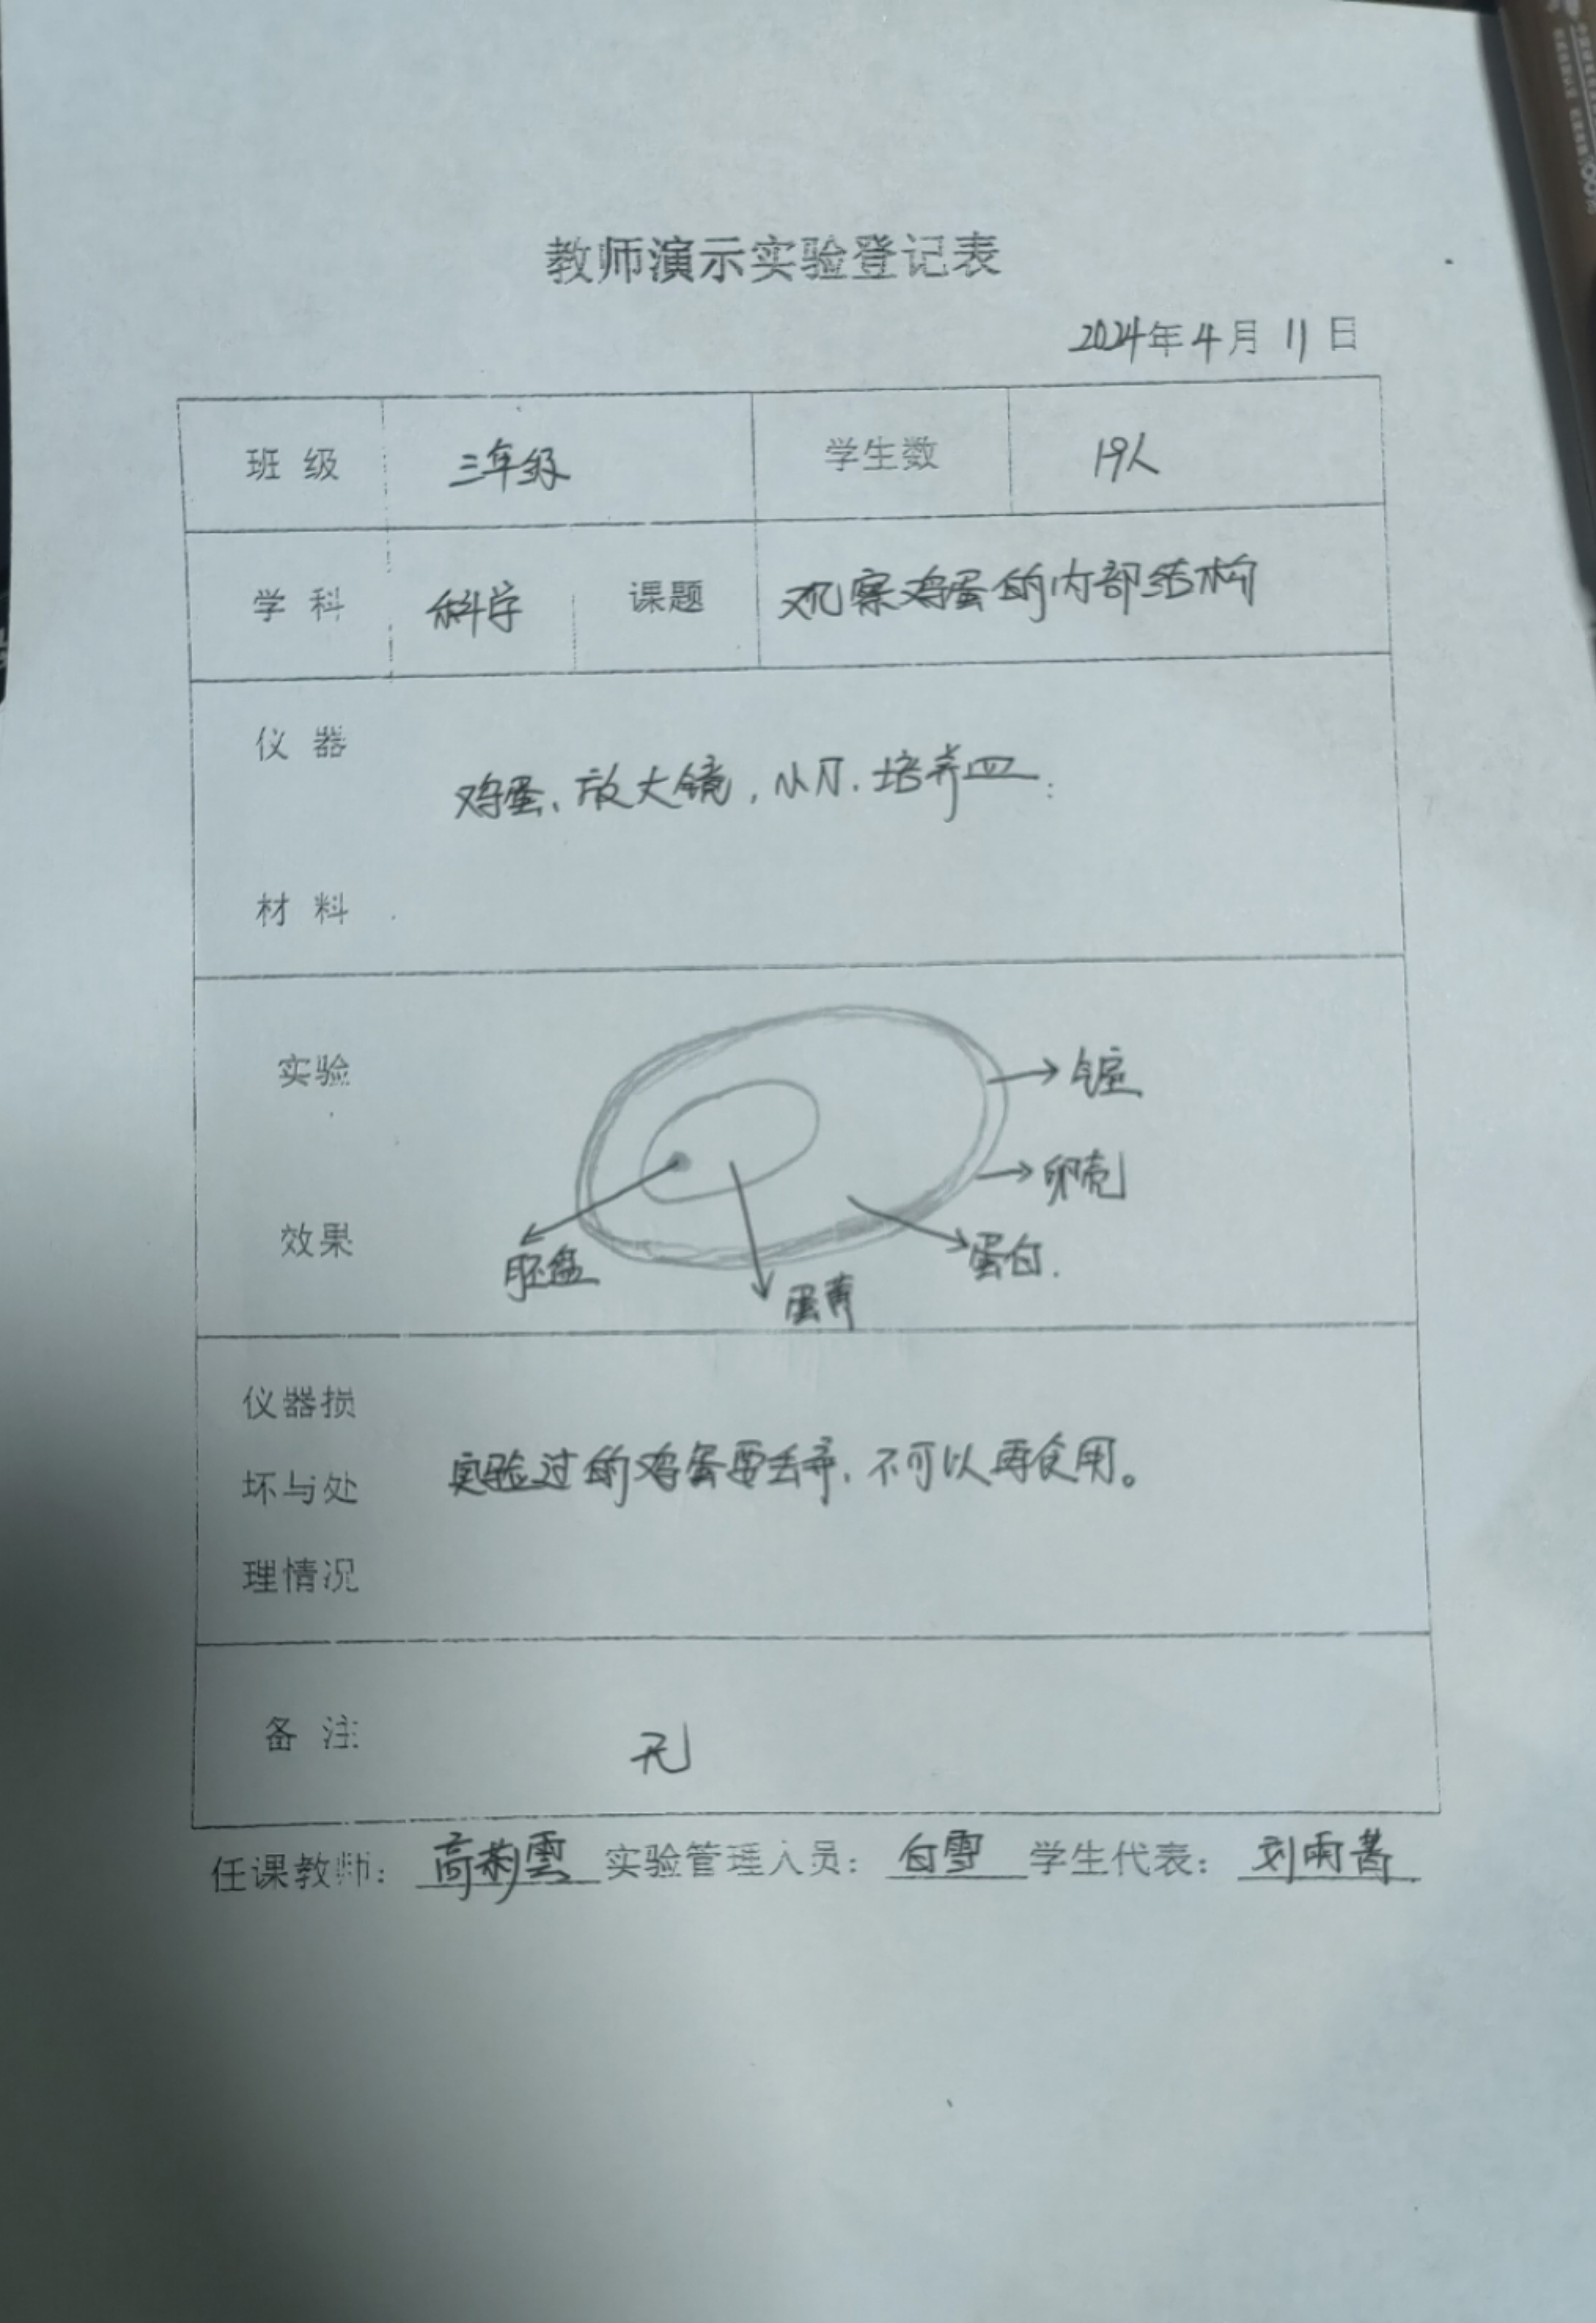 教师演示实验登记表
2024年4月11日
班级 三年级 学生数 19人
学科 科学 课题 观察鸡蛋的内部结构
仪器
鸡蛋、放大镜,小刀.培养皿
材料
实验
气室
卵壳
效果
蛋白.
胚盘
蛋黄
仪器损
坏与处
实验过的鸡蛋要丢弃,不可以再食用。
理情况
备注 无
任课教师: 高菊雲 实验管理人员: 白雪 学生代表: 刘雨